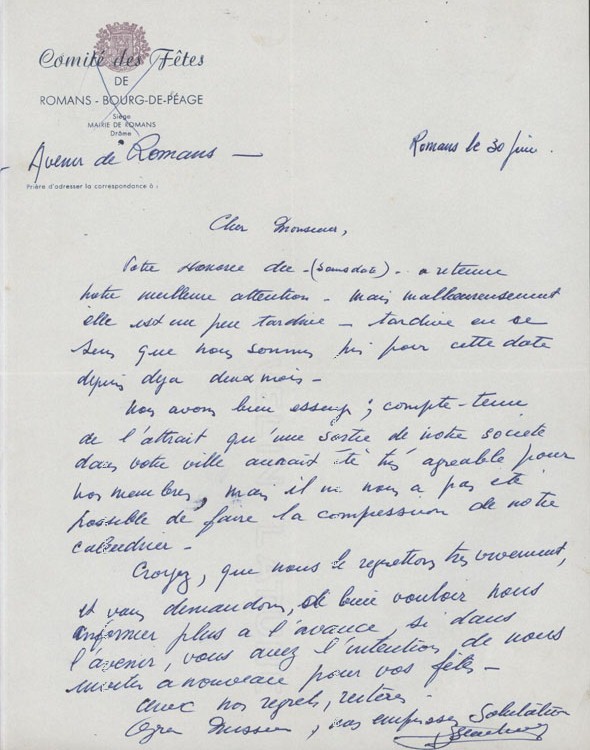 Comité des Fêtes
DE
ROMANS - BOURG-DE-PÉAGE
Siège
MAIRIE DE ROMANS
Drôme
Avenir de Romans -
Romans le 30 juin.
Prière d'adresser la correspondance à :
Cher Monsieur,
Votre Honorée du -(Sans date)- a retenue
notre meilleure attention - mais malheureusement
elle est un peu tardive - tardive en ce
sens que nous sommes pris pour cette date
depuis deja deux mois -
Nous avons bien essayé ; compte-tenu
de l'attrait qu'une sortie de notre société
dans votre ville aurait été très agreable pour
nos membres, mais il ne nous a pas été
possible de faire la compression de notre
calendrier -
Croyez, que nous le regrettons très vivement,
et vous demandons, de bien vouloir nous
informer plus a l'avance, si dans
l'avenir, vous avez l'intention de nous
inviter a nouveau pour vos fêtes -
avec nos regrets, reiteres -
empresses Salutation